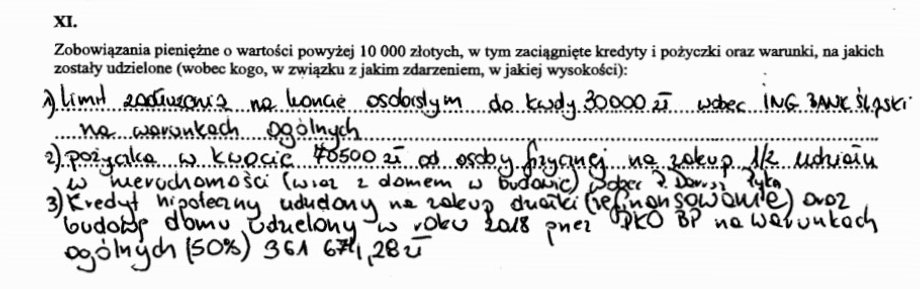 XI.
Zobowiązania pieniężne o wartości powyżej 10 000 złotych, w tym zaciągnięte kredyty i pożyczki oraz warunki, na jakich
zostały udzielone (wobec kogo, w związku z jakim zdarzeniem, w jakiej wysokości):
1) limit zadłużenia na koncie osobistym do kwoty 30000 zł wobec ING BANK Śląski
na warunkach ogólnych
2) pożyczka w kwocie 70500 zł od osoby fizycznej na zakup 1/2 udziału
w nieruchomości (wraz z domem w budowie) wobec P. Dariusz
3) Kredyt hipoteczny udzielony na zakup działki (refinansowanie) oraz
budowę domu udzielony w roku 2018 przez PKO BP na warunkach
ogólnych (50%) 361 671,28 zł